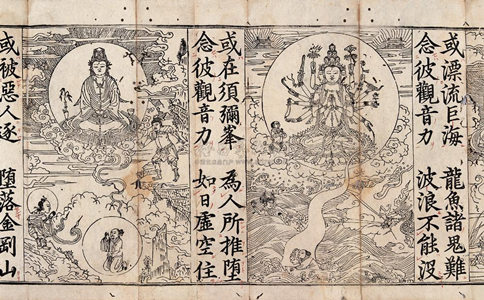 或漂流巨海　龍魚諸鬼難
念彼觀音力　波浪不能沒
或在須彌峯　為人所推墮
念彼觀音力　如日虛空住
或被惡人逐　墮落金剛山